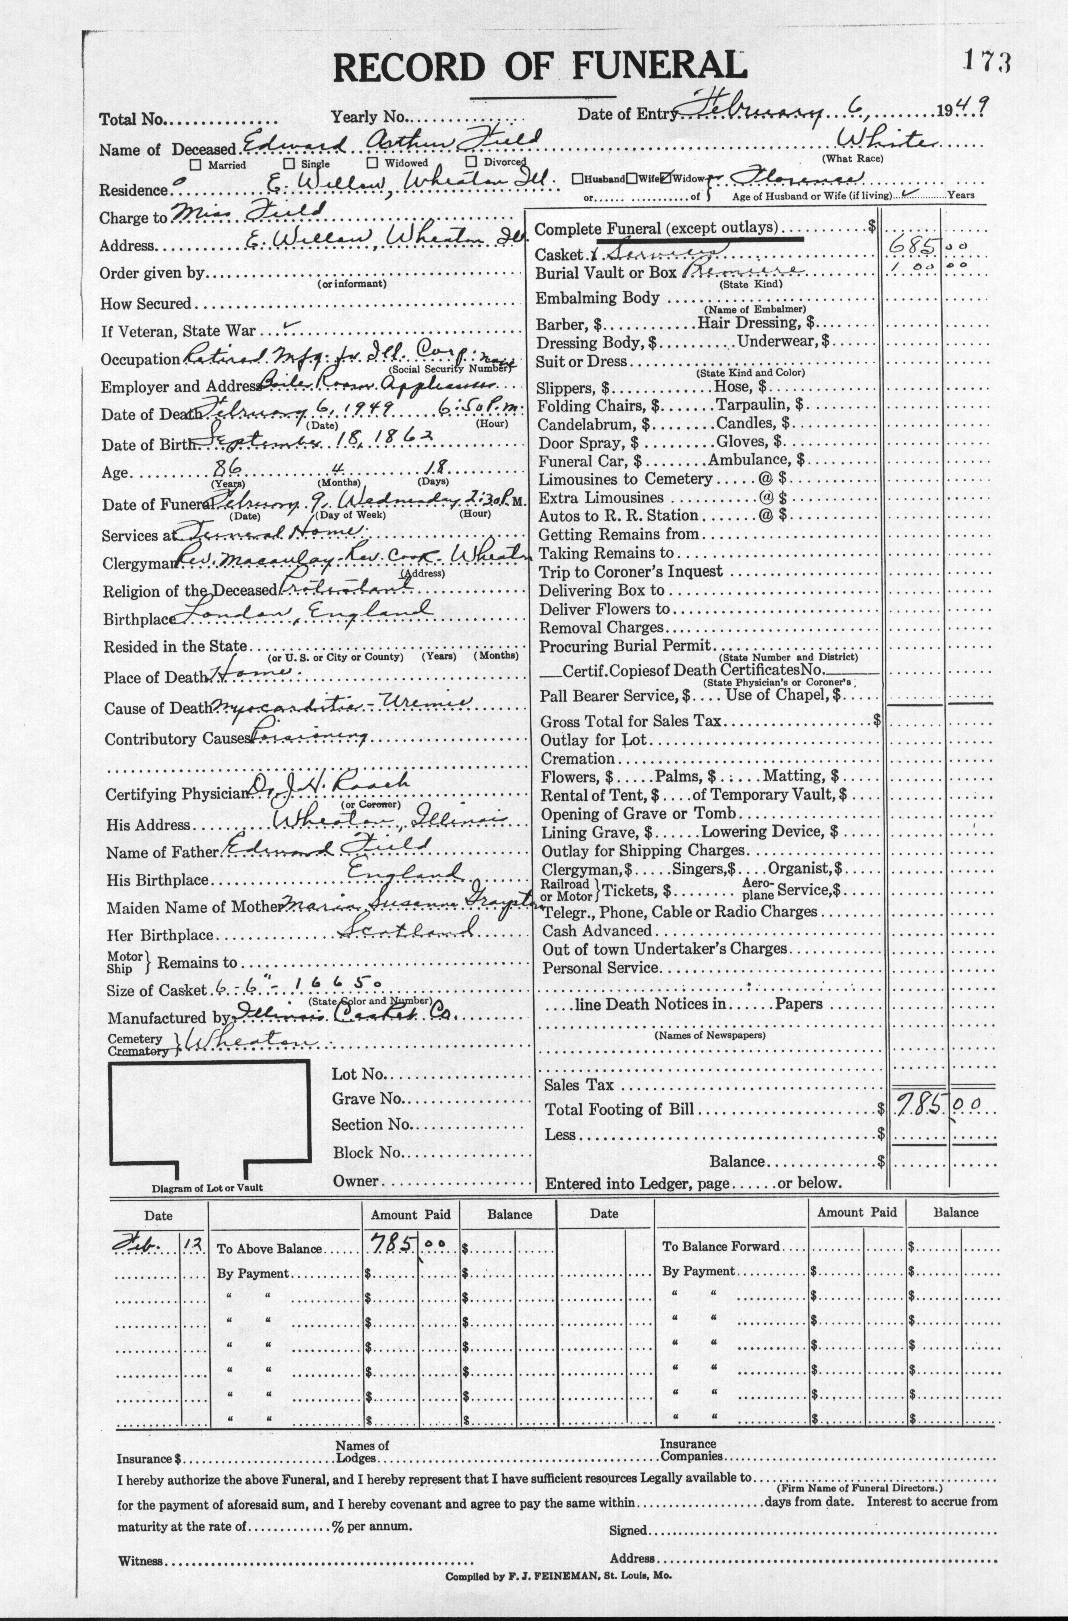 RECORD OF FUNERAL
173
Total No. Yearly No. Date of Entry February 6, 1949
Name of Deceased Edward Arthur Field White
(What Race)
Married Single Widowed Divorced
Residence E. Willow, Wheaton Ill. Husband Wife Widow or Florence
or of } Age of Husband or Wife (if living) ✓ Years
Charge to Miss Field
Address E. Willow, Wheaton Ill.
Order given by
(or informant)
How Secured
If Veteran, State War ✓
Occupation Retired Mfg. for Ill. Corp.
(Social Security Number)
Employer and Address Boiler Room Appliances
Date of Death February 6, 1949 6:50 P.m.
(Date) (Hour)
Date of Birth September 18, 1862
Age 86 4 18
(Years) (Months) (Days)
Date of Funeral February 9, Wednesday 2:30 P.M.
(Date) (Day of Week) (Hour)
Services at Funeral Home.
Clergyman Rev. Macaulay - Rev. Cook - Wheaton
(Address)
Religion of the Deceased Protestant
Birthplace London, England
Resided in the State
(or U. S. or City or County) (Years) (Months)
Place of Death Home.
Cause of Death Myocarditis - Uremic
Contributory Causes Poisoning
Certifying Physician Dr. J. H. Roach
(or Coroner)
His Address Wheaton, Illinois
Name of Father Edward Field
His Birthplace England
Maiden Name of Mother Maria Susanne
Her Birthplace Scotland
Motor Ship } Remains to
Size of Casket 6-6" - 16650
(State Color and Number)
Manufactured by Illinois Casket Co.
Cemetery Crematory } Wheaton.
Lot No.
Grave No.
Section No.
Block No.
Owner
Diagram of Lot or Vault
Complete Funeral (except outlays) $
Casket & Services 685 00
Burial Vault or Box 1 00 00
(State Kind)
Embalming Body
(Name of Embalmer)
Barber, $ Hair Dressing, $
Dressing Body, $ Underwear, $
Suit or Dress
(State Kind and Color)
Slippers, $ Hose, $
Folding Chairs, $ Tarpaulin, $
Candelabrum, $ Candles, $
Door Spray, $ Gloves, $
Funeral Car, $ Ambulance, $
Limousines to Cemetery @ $
Extra Limousines @ $
Autos to R. R. Station @ $
Getting Remains from
Taking Remains to
Trip to Coroner's Inquest
Delivering Box to
Deliver Flowers to
Removal Charges
Procuring Burial Permit
(State Number and District)
Certif. Copies of Death Certificates No.
(State Physician's or Coroner's
Pall Bearer Service, $ Use of Chapel, $
Gross Total for Sales Tax $
Outlay for Lot
Cremation
Flowers, $ Palms, $ Matting, $
Rental of Tent, $ of Temporary Vault, $
Opening of Grave or Tomb
Lining Grave, $ Lowering Device, $
Outlay for Shipping Charges
Clergyman, $ Singers, $ Organist, $
Railroad or Motor } Tickets, $ Aeroplane Service, $
Telegr., Phone, Cable or Radio Charges
Cash Advanced
Out of town Undertaker's Charges
Personal Service
line Death Notices in Papers
(Names of Newspapers)
Sales Tax
Total Footing of Bill $ 785 00
Less $
Balance $
Entered into Ledger, page or below.
Date Amount Paid Balance Date Amount Paid Balance
Feb. 12 To Above Balance 785 00 $ To Balance Forward $
By Payment $ $ By Payment $ $
" " $ $ " " $ $
" " $ $ " " $ $
" " $ $ " " $ $
" " $ $ " " $ $
" " $ $ " " $ $
" " $ $ " " $ $
Insurance $ Names of Lodges Insurance Companies
I hereby authorize the above Funeral, and I hereby represent that I have sufficient resources Legally available to
(Firm Name of Funeral Directors.)
for the payment of aforesaid sum, and I hereby covenant and agree to pay the same within days from date. Interest to accrue from
maturity at the rate of % per annum. Signed
Witness Address
Compiled by F. J. FEINEMAN, St. Louis, Mo.